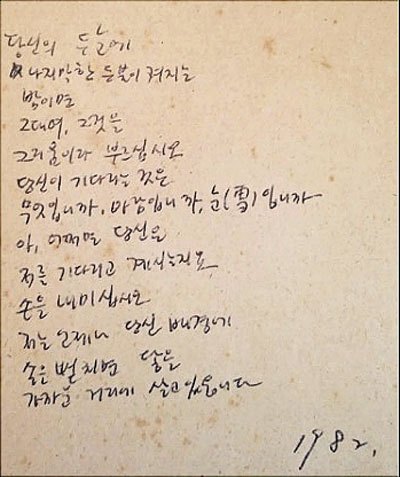 당신의 두 눈에
나지막한 등불이 켜지는
밤이면
그대여, 그것을
그리움이라 부르십시오
당신이 기다리는 것은
무엇입니까, 바람입니까, 눈(雪)입니까
아, 어쩌면 당신은
저를 기다리고 계시는지요
손을 내미십시오
저는 언제나 당신 배경에
손을 뻗치면 닿을
가까운 거리에 살고 있습니다
1982.